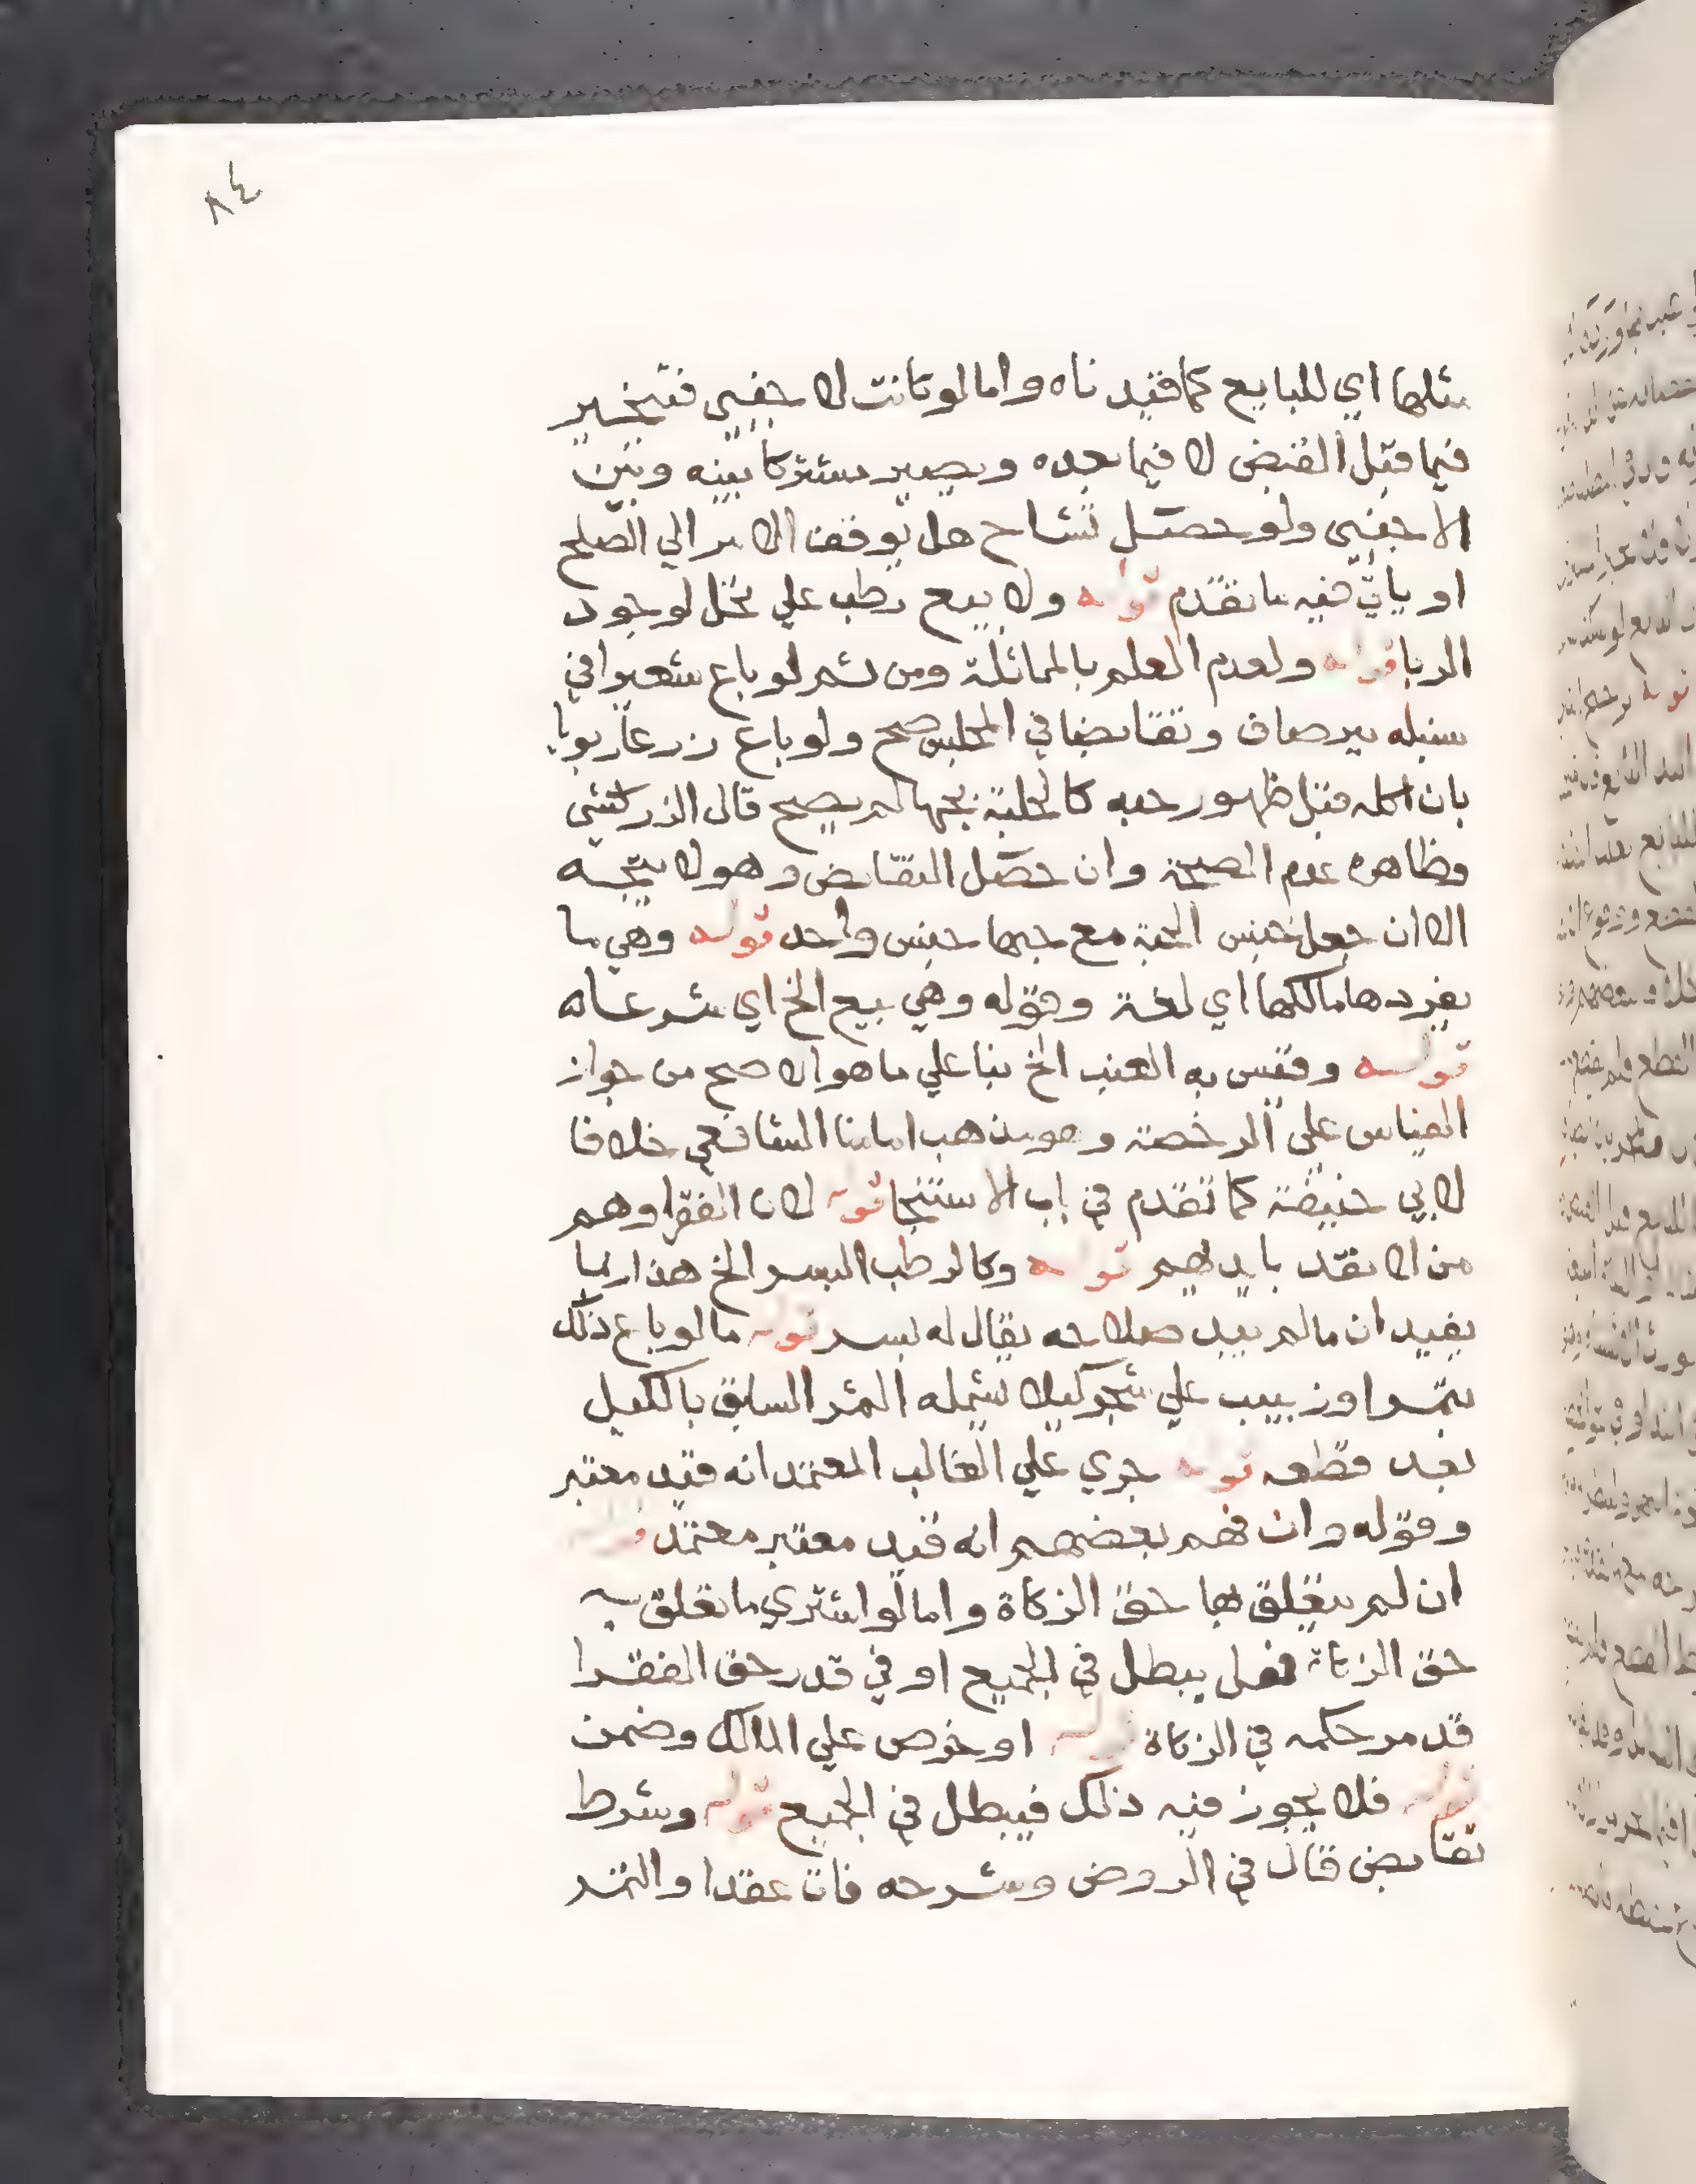 ٨٤
مثلها اي للبايع كما قيد ناه واما لو كانت لاجنبي فتخير
فيما قبل القبض لا فيما بعده ويصير مشتركا بينه وبين
الاجنبي ولو حصل تشاح هل يوقف الامر الي الصلح
او ياتي فيه ما تقدم قوله ولا بيع رطب علي نخل لوجود
الربا قوله ولعدم العلم بالمماثلة ومن ثم لو باع شعيرا في
سنبله ببر صاف وتقابضا في المجلس صح ولو باع زرعا ربويا
بان اكله قبل ظهور حبه كالحلبة بحبها لم يصح قال الزركشي
وظاهره عدم الصحة وان حصل التقابض وهو لا يتجه
الا ان جعل جنس الحبة مع حبها جنس واحد قوله وهي ما
يفردها مالكها اي لغة وقوله وهي بيع الخ اي شرعا اه
قوله وقيس به العنب الخ بنا علي ما هو الاصح من جواز
القياس علي الرخصة وهو مذهب امامنا الشافعي خلافا
لابي حنيفة كما تقدم في باب الاستنجا قوله لان الفقرا وهم
من لا نقد بايديهم قوله وكالرطب البسر الخ هذا ربما
يفيد ان ما لم يبد صلاحه يقال له بسر قوله ما لو باع ذلك
بتمر او زبيب علي شجر كيلا يشمله المتر السابق بالكيل
بعد قطعه قوله جري علي الغالب المعتمد انه قيد معتبر
وقوله وان فهم بعضهم انه قيد معتبر معتمد قوله
ان لم يتعلق بها حق الزكاة واما لو اشتري ما تعلق به
حق الزكاة فهل يبطل في الجميع او في قدر حق الفقرا
قد مر حكمه في الزكاة قوله او خرص علي المالك وضمن
قوله فلا يجوز فيه ذلك فيبطل في الجميع قوله وشرط
تقابض قال في الروض وشرحه فان عقدا والتمر